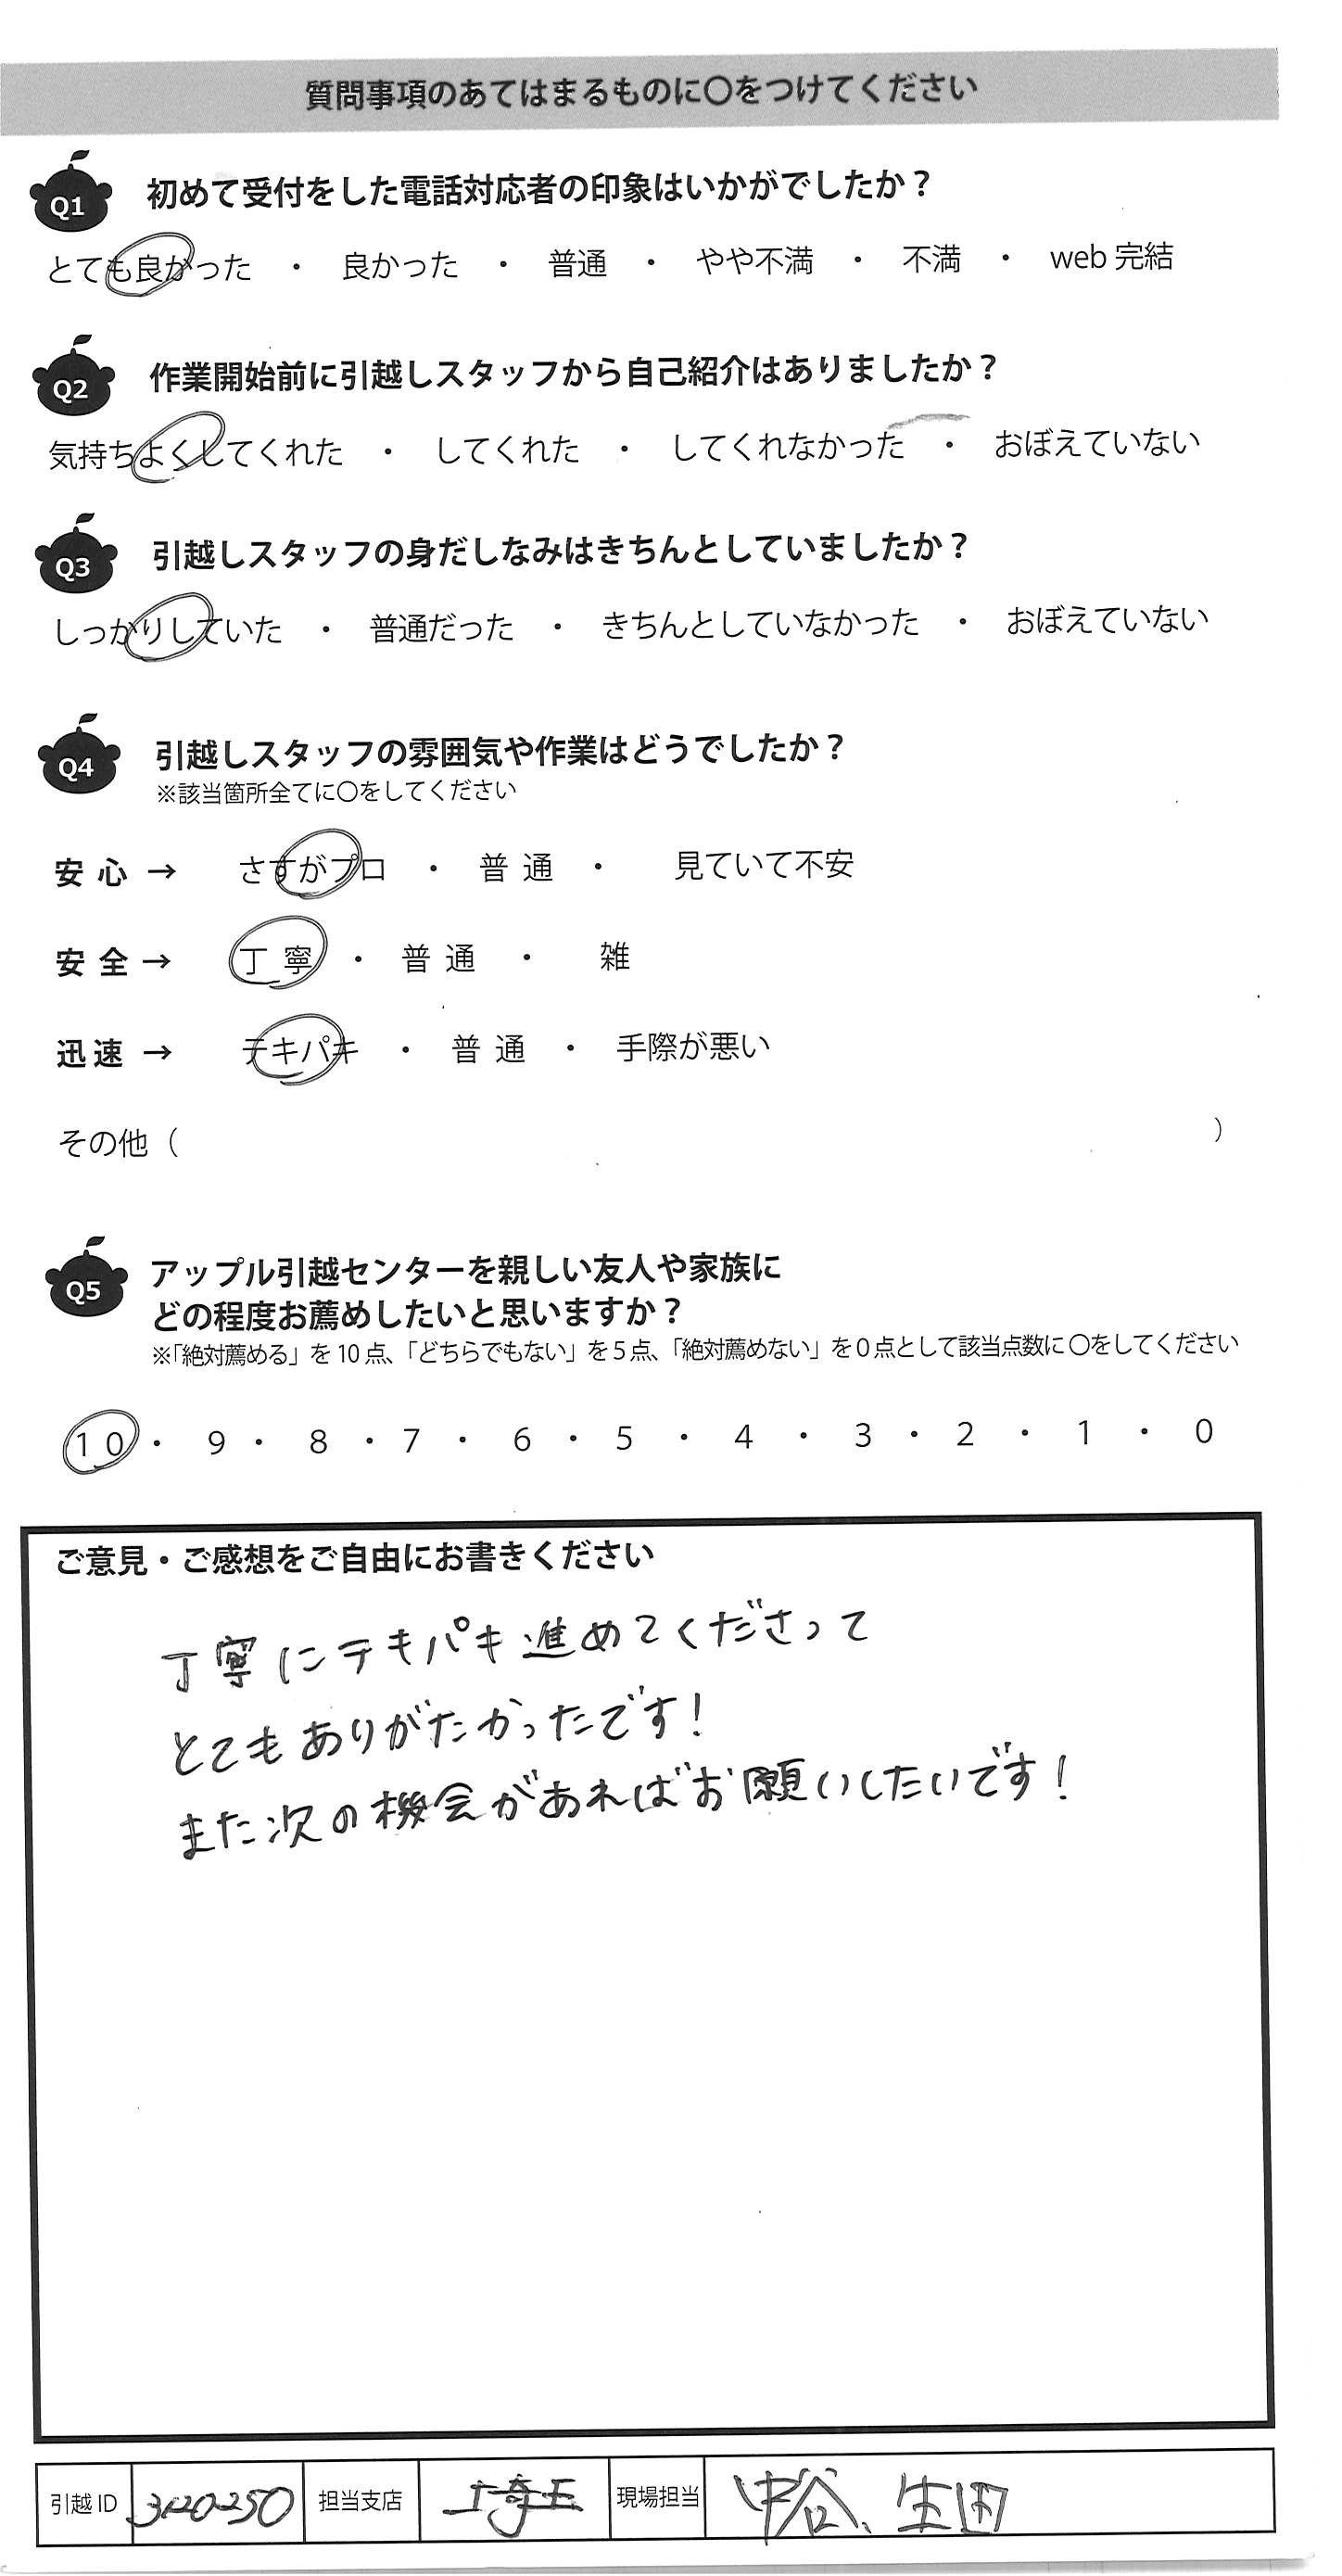 質問事項のあてはまるものに〇をつけてください
Q1 初めて受付をした電話対応者の印象はいかがでしたか？
とても良かった ・ 良かった ・ 普通 ・ やや不満 ・ 不満 ・ web 完結
Q2 作業開始前に引越しスタッフから自己紹介はありましたか？
気持ちよくしてくれた ・ してくれた ・ してくれなかった ・ おぼえていない
Q3 引越しスタッフの身だしなみはきちんとしていましたか？
しっかりしていた ・ 普通だった ・ きちんとしていなかった ・ おぼえていない
Q4 引越しスタッフの雰囲気や作業はどうでしたか？
※該当箇所全てに〇をしてください
安心 → さすがプロ ・ 普通 ・ 見ていて不安
安全 → 丁寧 ・ 普通 ・ 雑
迅速 → テキパキ ・ 普通 ・ 手際が悪い
その他（ ）
Q5 アップル引越センターを親しい友人や家族に
どの程度お薦めしたいと思いますか？
※「絶対薦める」を 10 点、「どちらでもない」を 5 点、「絶対薦めない」を 0 点として該当点数に 〇をしてください
10 ・ 9 ・ 8 ・ 7 ・ 6 ・ 5 ・ 4 ・ 3 ・ 2 ・ 1 ・ 0
ご意見・ご感想をご自由にお書きください
丁寧にテキパキ進めてくださって
とてもありがたかったです！
また次の機会があればお願いしたいです！
引越 ID 3120250 担当支店 埼玉 現場担当 中谷、生田